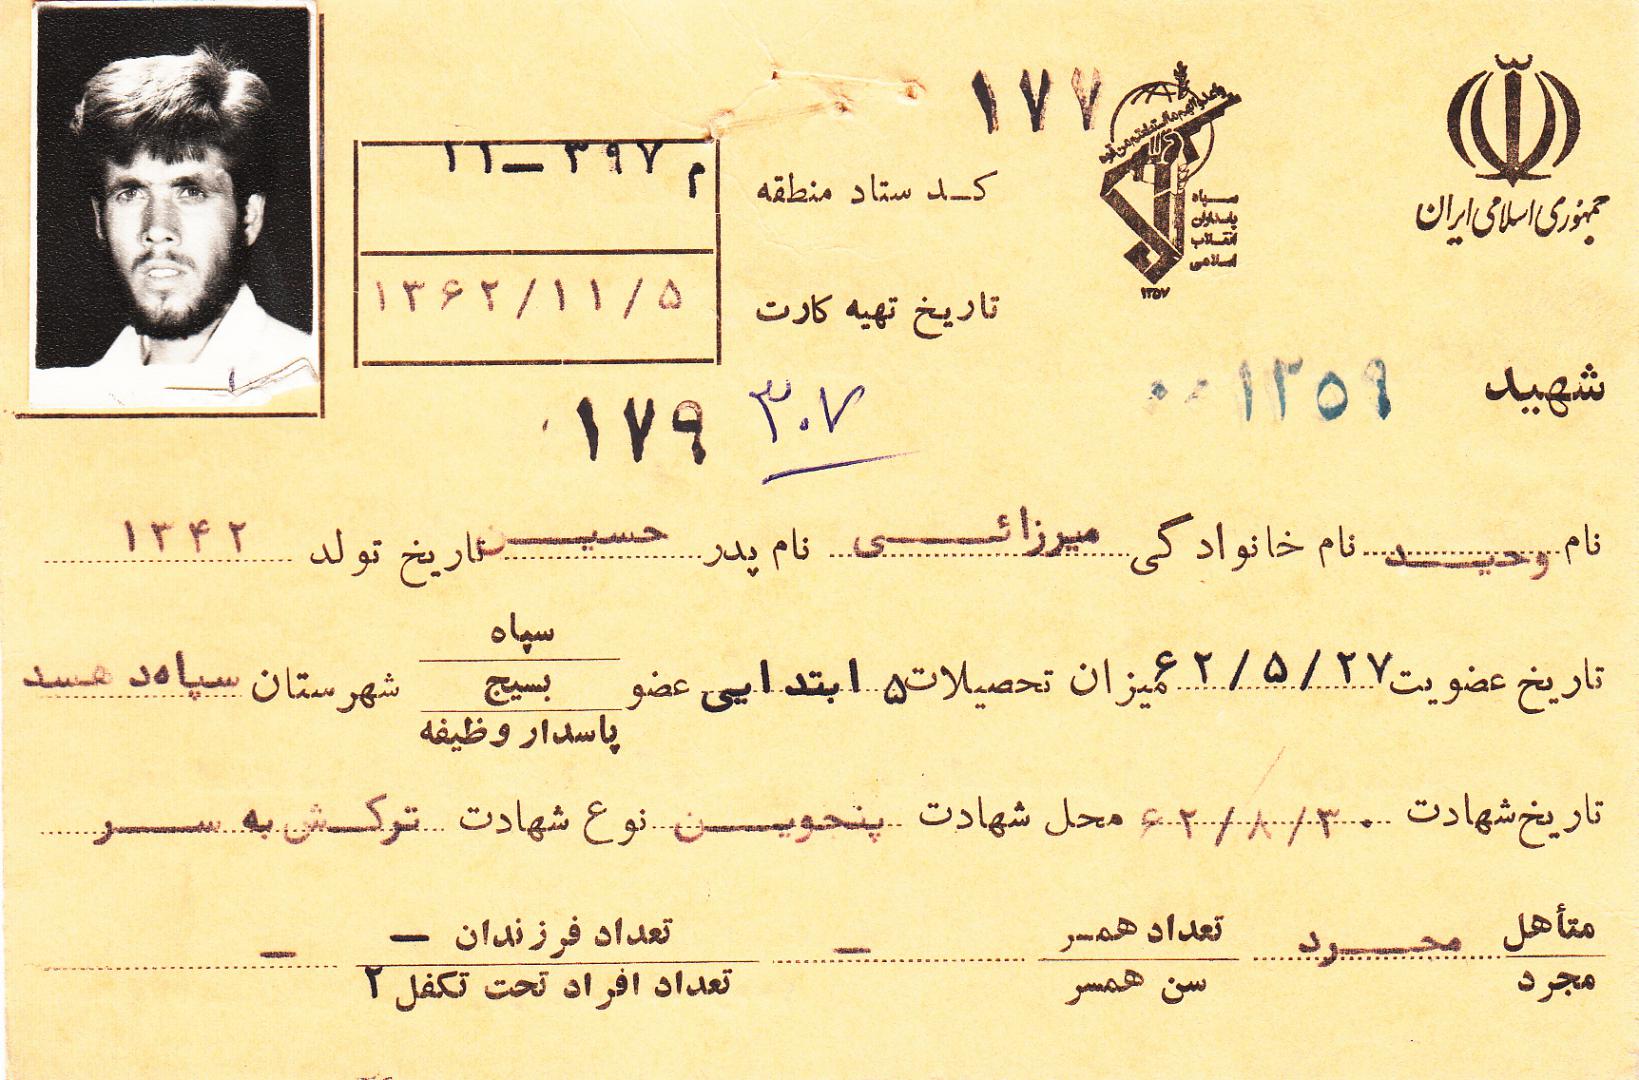 جمهوری اسلامی ایران
سپاه
پاسداران
انقلاب
اسلامی
۱۳۵۷
۱۷۷
کد ستاد منطقه م ۳۹۷ – ۱۱
تاریخ تهیه کارت ۱۳۶۲/۱۱/۵
شهید ۰۰۱۳۵۹
۳۰۷
۱۷۹
نام وحید نام خانوادگی میرزائی نام پدر حسین تاریخ تولد ۱۳۴۲
تاریخ عضویت ۶۲/۵/۲۷ میزان تحصیلات ۵ ابتدایی عضو سپاه بسیج پاسدار وظیفه شهرستان
تاریخ شهادت ۶۲/۸/۳۰ محل شهادت پنجوین نوع شهادت ترکش به سر
متأهل مجرد مجرد تعداد همسر – تعداد فرزندان – –
سن همسر تعداد افراد تحت تکفل ۲